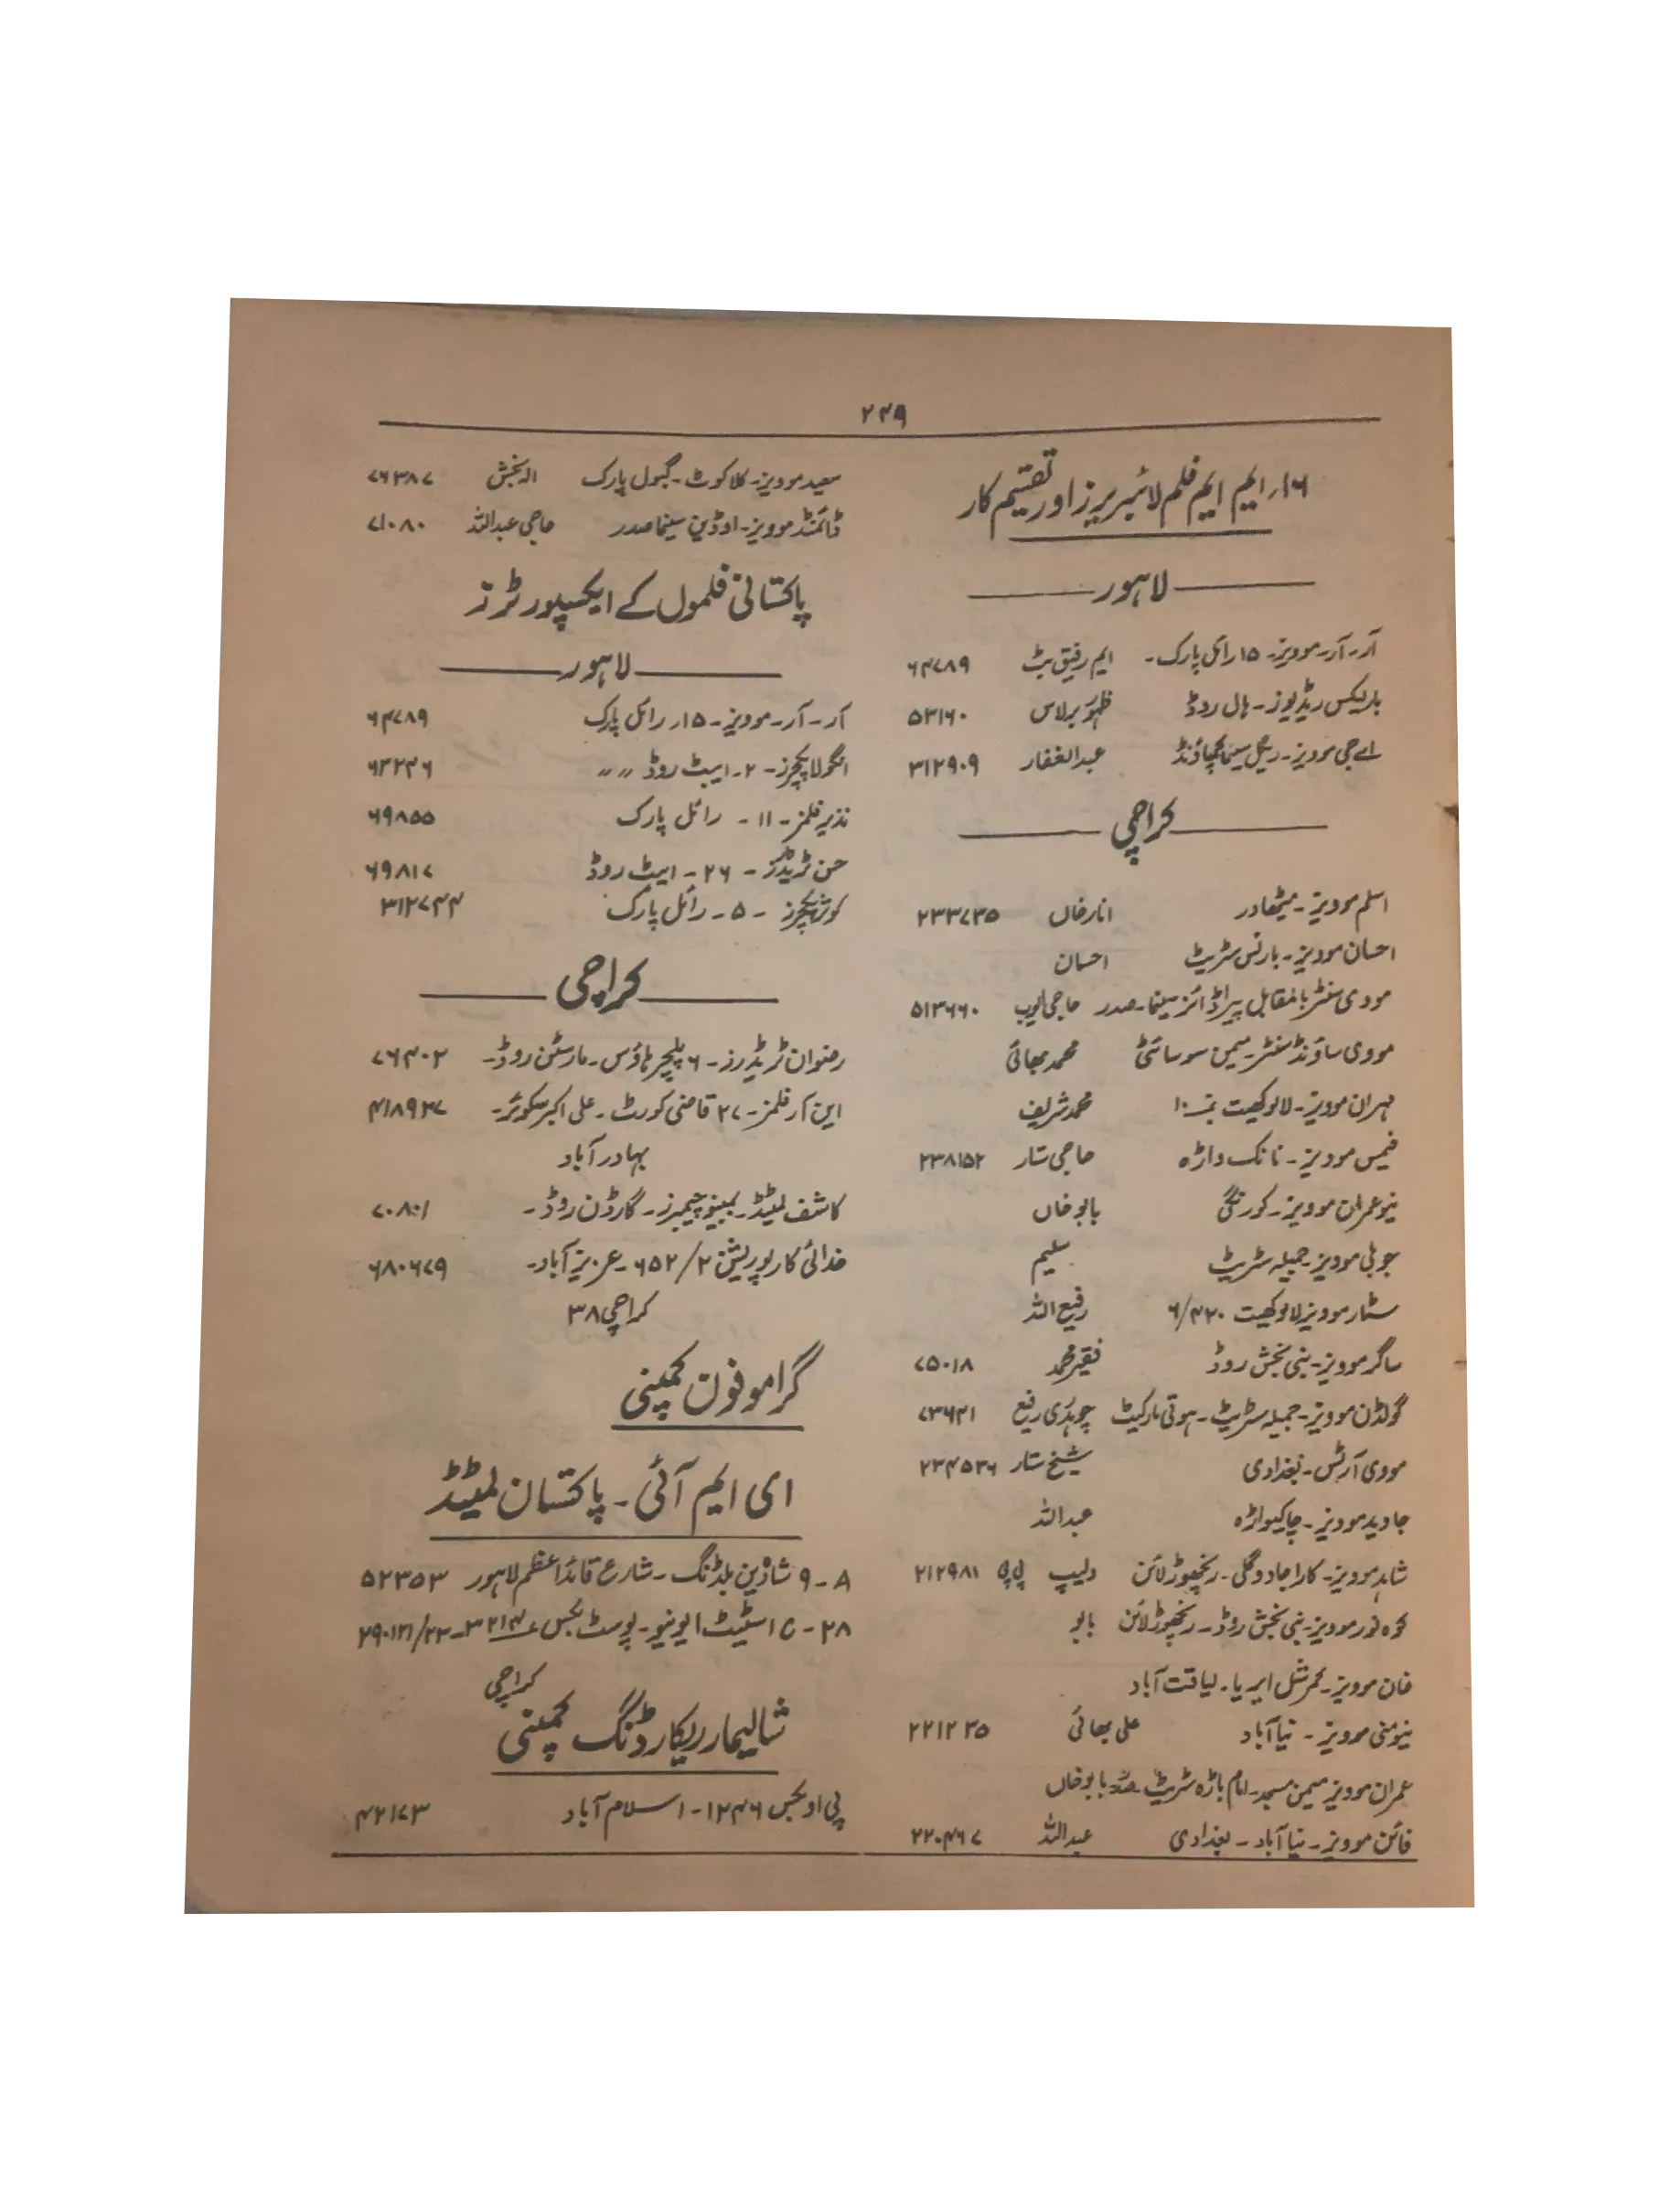 ۲۴۹
۱۶ر ایم ایم فلم لائبریریز اور تقسیم کار
لاہور
آر۔ آر۔ موویز۔ ۱۵ رائل پارک۔ ایم رفیق بٹ ۶۴۷۸۹
ریڈیوز۔ ہال روڈ ظہور برلاس ۵۳۱۶۰
اے جی موویز۔ ریگل سینما کمپاؤنڈ عبدالغفار ۳۱۲۹۰۹
کراچی
اسلم موویز۔ میٹھادر انارخاں ۲۳۳۷۳۵
احسان موویز۔ بارنس سٹریٹ احسان
مووی سنٹر بالمقابل پیراڈائز سینما۔ صدر حاجی ایوب ۵۱۳۶۶۰
مووی ساؤنڈ سنٹر۔ میمن سوسائٹی محمد بھائی
مہران موویز۔ لالوکھیت نمبر۱۰ محمد شریف
فیمس موویز۔ نانک واڑہ حاجی ستار ۲۳۸۱۵۲
نیو عمران موویز۔ کورنگی بابو خاں
جوبلی موویز۔ جمیلہ سٹریٹ سلیم
سٹار موویز لالوکھیت ۶/۴۲۰ رفیع اللہ
ساگر موویز۔ نبی بخش روڈ فقیر محمد ۷۵۰۱۸
گولڈن موویز۔ جمیلہ سٹریٹ۔ ہوتی مارکیٹ چوہدری رفیع ۷۳۶۴۱
مووی آرٹس۔ بغدادی شیخ ستار ۲۳۴۵۳۶
جاوید موویز۔ چاکیواڑہ عبداللہ
شاہد موویز۔ کارا جادو گلی۔ رنچھوڑ لائن دلیپ پی پی ۲۱۲۹۸۱
کوہ نور موویز۔ نبی بخش روڈ۔ رنچھوڑ لائن بابو
خان موویز۔ کمرشل ایریا۔ لیاقت آباد
نیو منی موویز۔ نیا آباد علی بھائی ۲۲۱۲۳۵
عمران موویز میمن مسجد۔ امام باڑہ سٹریٹ۔ صدر بابو خاں
فائن موویز۔ نیا آباد۔ بغدادی عبداللہ ۲۲۰۴۶۷
سعید موویز۔ کلاکوٹ۔ گبول پارک الہ بخش ۷۶۳۸۷
ڈائمنڈ موویز۔ اوڈین سینما صدر حاجی عبداللہ ۷۱۰۸۰
پاکستانی فلموں کے ایکسپورٹرز
لاہور
آر۔ آر۔ موویز۔ ۱۵ر رائل پارک ۶۴۷۸۹
انگولا پکچرز۔ ۲۔ ایبٹ روڈ ״ ״ ۶۳۲۴۶
نذیر فلمز۔ ۱۱۔ رائل پارک ۶۹۸۵۵
حسن ٹریڈرز۔ ۲۶۔ ایبٹ روڈ ۶۹۸۱۷
کوثر پکچرز۔ ۵۔ رائل پارک ۳۱۲۷۴۴
کراچی
رضوان ٹریڈرز۔ ۶ پکچر ہاؤس۔ مارسٹن روڈ۔ ۷۶۴۰۲
این آر فلمز۔ ۲۷ قاضی کورٹ۔ علی اکبر سکوئر۔ ۴۱۸۹۲۷
بہادر آباد
کاشف لمیٹڈ۔ بمبینو چیمبرز۔ گارڈن روڈ۔ ۷۰۸۰۱
خدائی کارپوریشن ۶۵۲/۲۔ عزیز آباد۔ ۶۸۰۶۷۹
کراچی ۳۸
گرامو فون کمپنی
ای ایم آئی۔ پاکستان لمیٹڈ
۸۔ ۹ شاڈین بلڈنگ۔ شارع قائد اعظم لاہور ۵۲۳۵۳
اسٹیٹ ایونیو۔ پوسٹ بکس
کراچی
شالیمار ریکارڈنگ کمپنی
پی او بکس ۱۲۴۶۔ اسلام آباد ۴۲۱۷۳